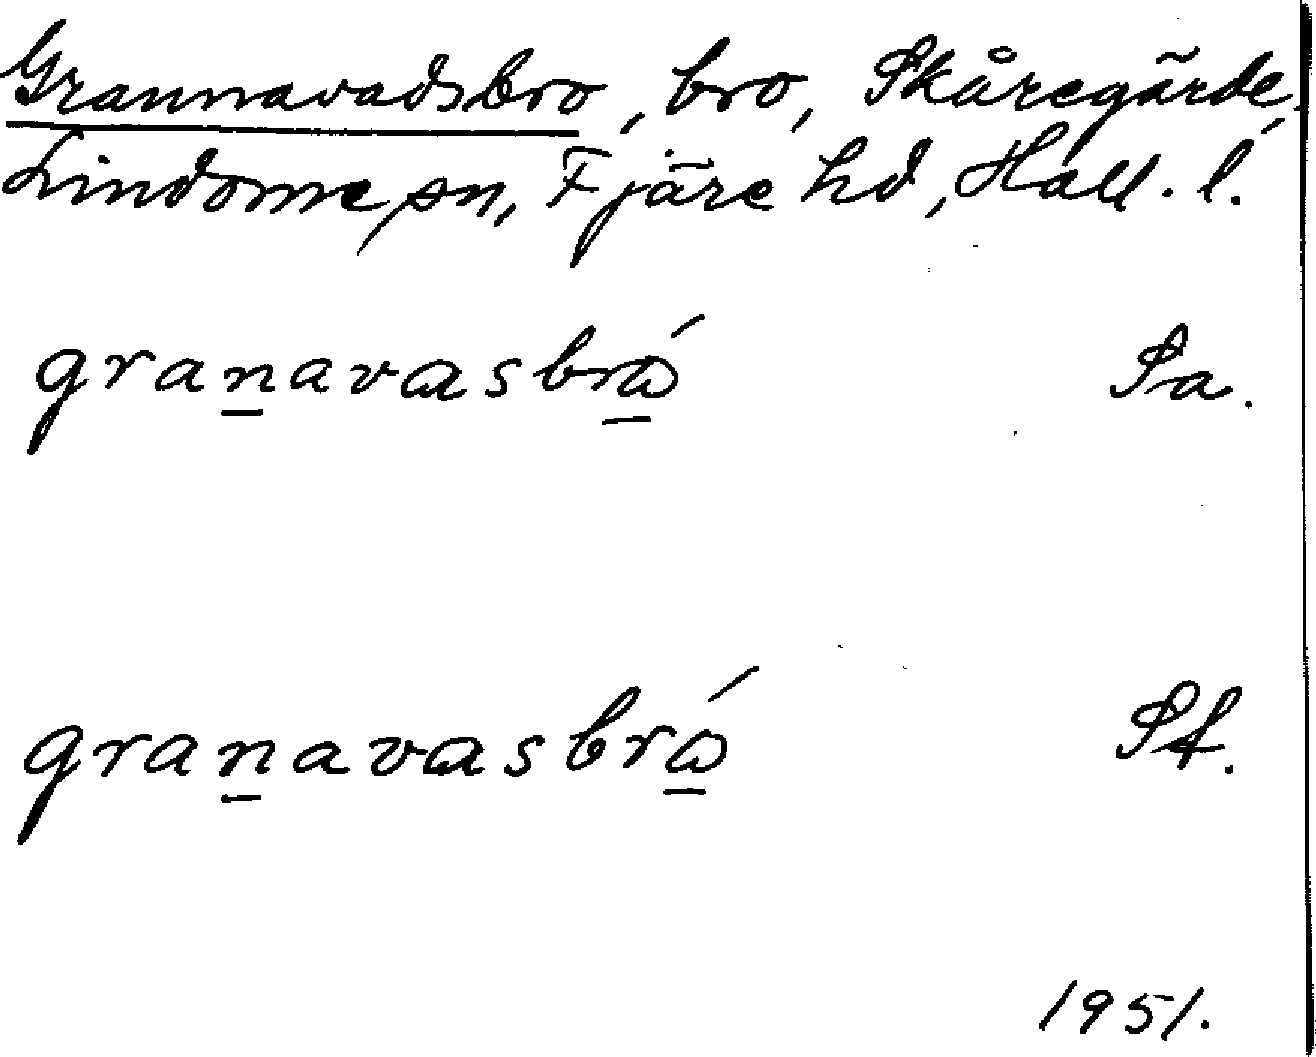 Grannavadsbro, bro, Skåregärde,
Lindome sn, Fjäre hd, Hall. l.
gran̲avasbrώ̲ Sa.
gran̲avasbrώ̲ Sf.
1951.